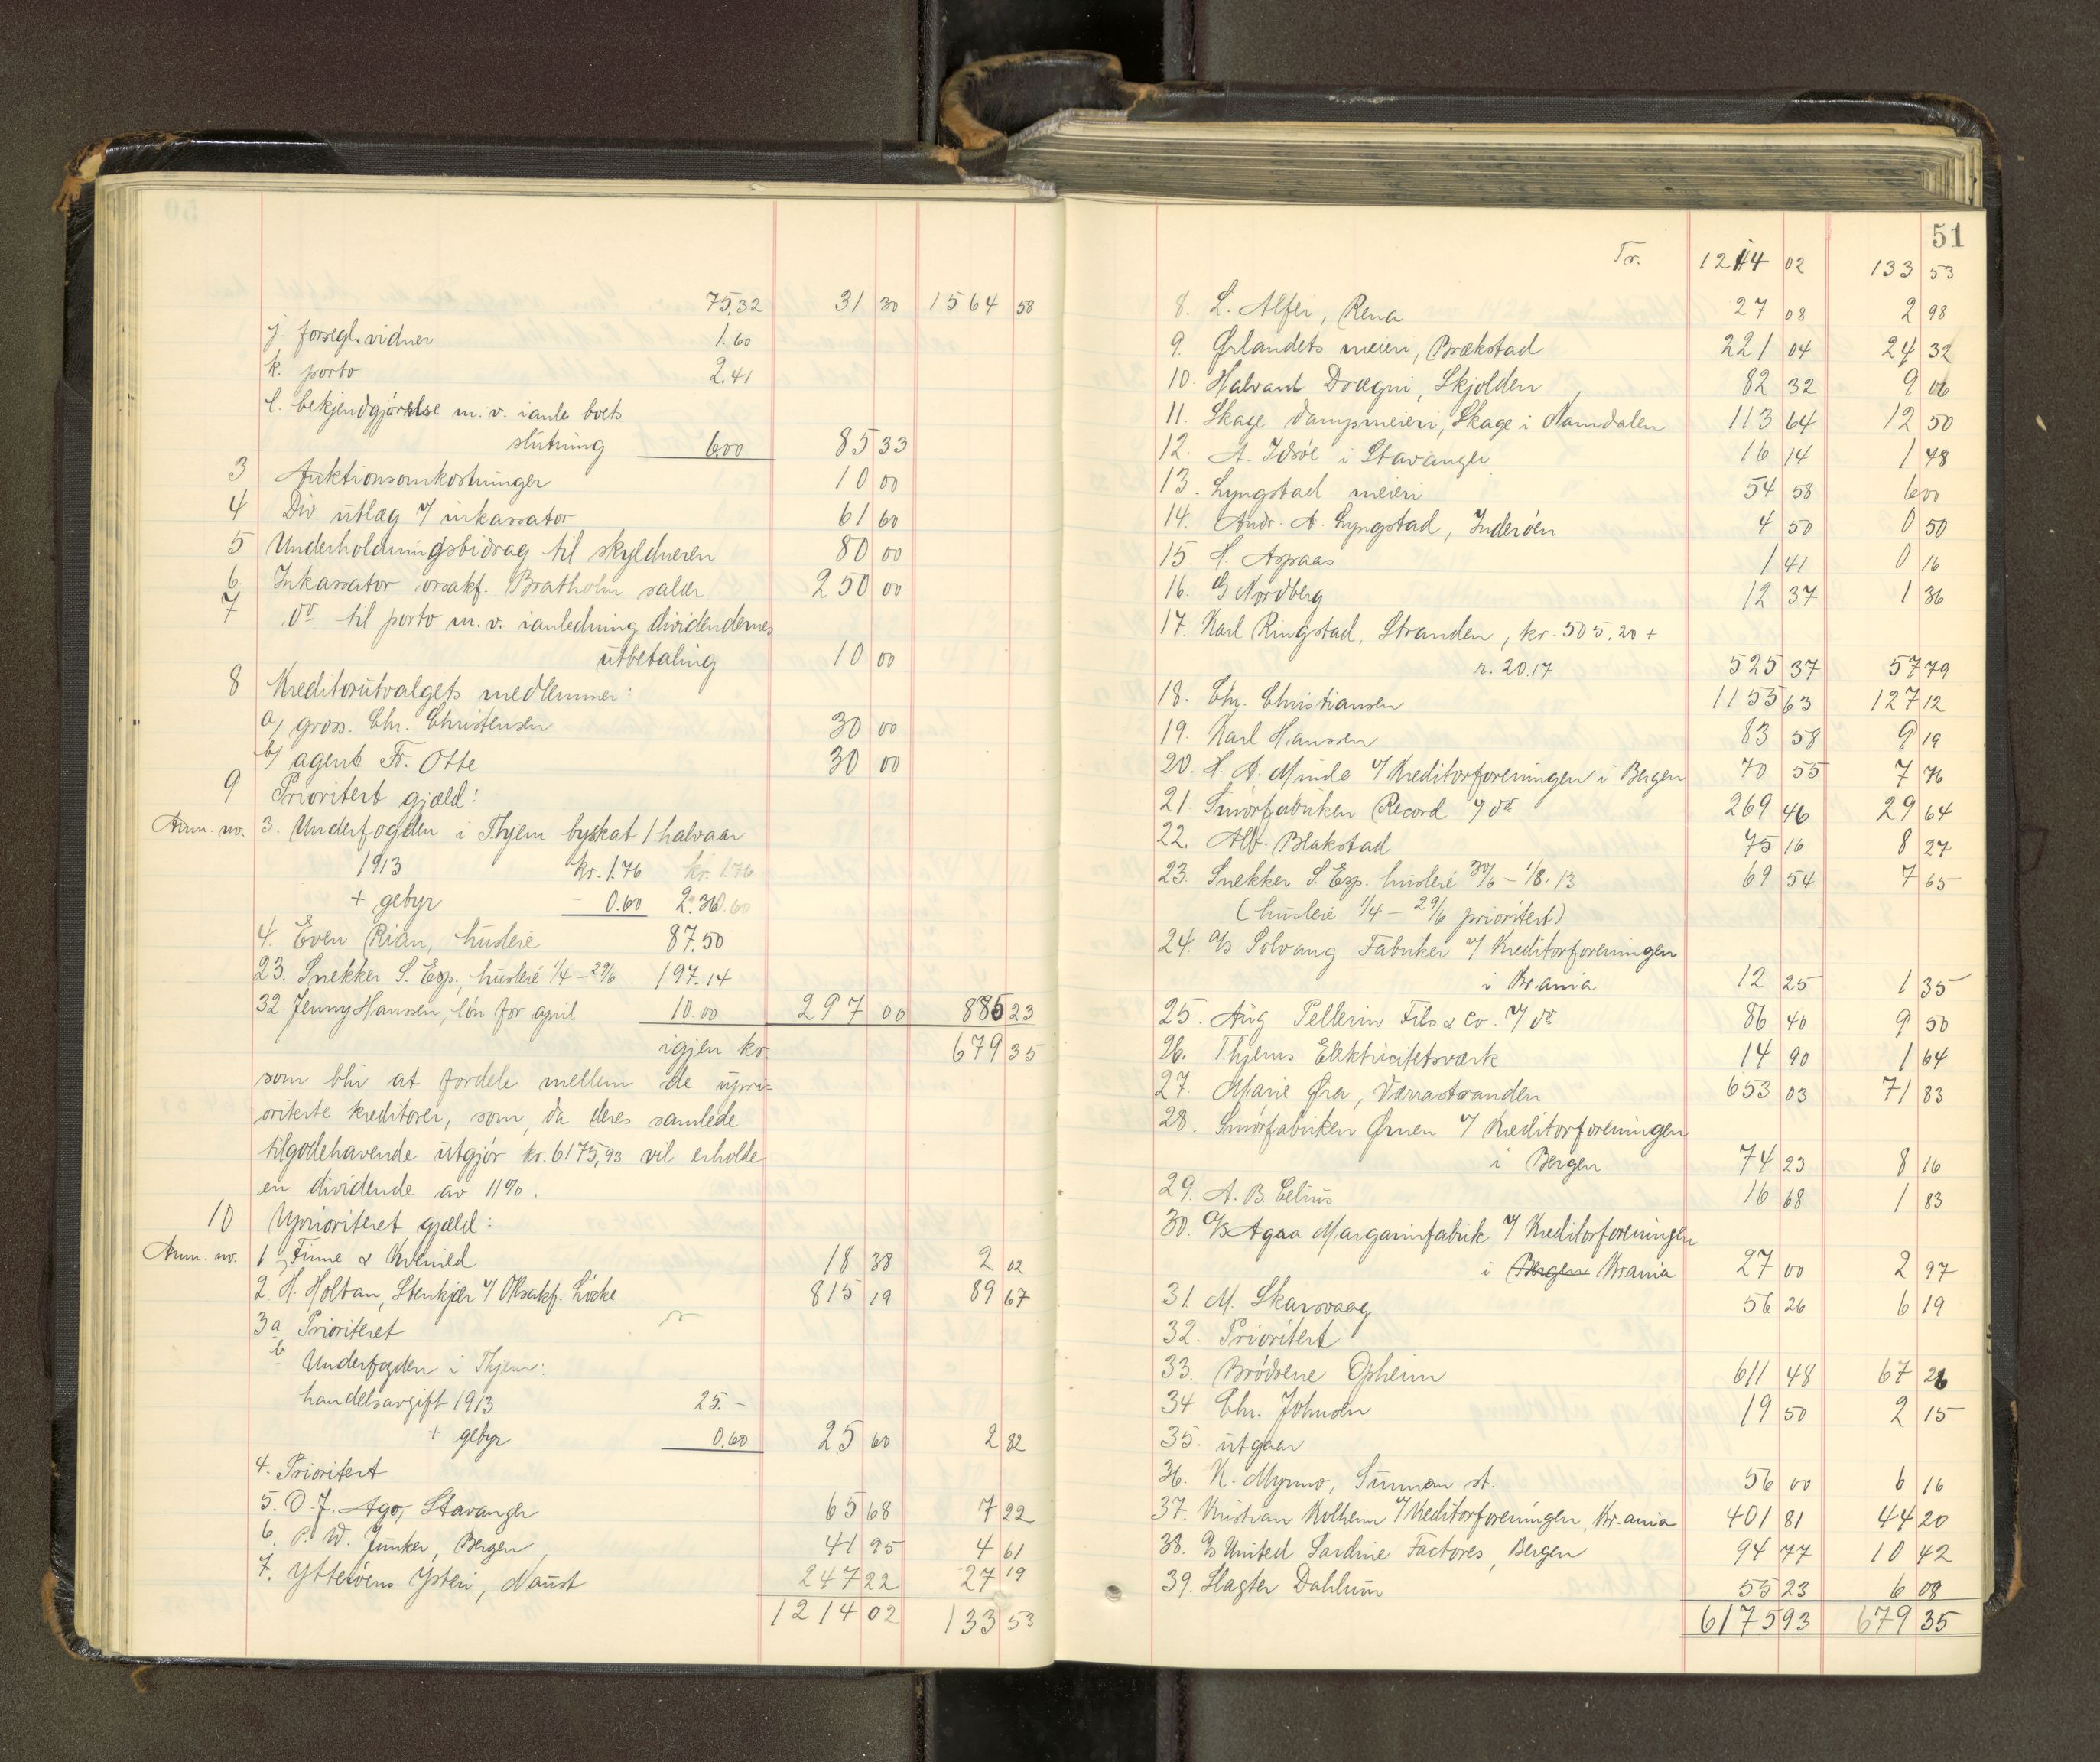 75,32 31 30 1564 58
j. forsegl. vidner 1.60
k. porto 2.41
l. bekjendtgjørelse m. v. ianle boets
slutning 6.00 85 33
3 Auktionsomkostninger 10 00
4 Div. utlæg v/ inkassator 61 60
5 Underholdningsbidrag til skyldneren 80 00
6. Inkassator orsakf. Bratholm salær 250 00
7 do til porto m. v. ianledning dividendernes
utbetaling 10 00
8 Kreditorutvalgets medlemmer:
a) gross. Chr. Christensen 30 00
b) agent Fr. Otte 30 00
9 Prioritert gjæld:
Anm. no. 3. Underfogden i Thjem byskat 1 halvaar
1913 kr. 1.76 kr. 1.76
+ gebyr - 0.60 2.36
4. Even Rian, husleie 87.50
23. Snekker S. Esp., husleie 1/4 - 29/6 197.14
32 Jenny Hansen, løn for april 10.00 297 00 885 23
igjen kr. 679 35
som blir at fordele mellem de upri=
oriterte kreditorer, som, da deres samlede
tilgodehavende utgjør kr. 6175,93 vil erholde
en dividende av 11%.
10 Uprioritert gjæld:
Anm. no. 1, Finne & Kvenild 18 38 2 02
2. H. Holtan, Stenkjær v/ ORsakf. Löcke 815 19 89 67
3 a Prioritert
b Underfogden i Thjem:
handelsavgift 1913 25.-
+ gebyr 0.60 25 60 2 82
4. Prioritert
5. O. J. Ago, Stavanger 65 68 7 22
6. P. W. Junker, Bergen 41 95 4 61
7. Ytterøens Ysteri, Naust 247 22 27 19
1214 02 133 53
51
Tr. 1214 02 133 53
8. L. Alfei, Rena 27 08 2 98
9. Ørlandets meieri, Brækstad 221 04 24 32
10. Halvard Drægni, Skjolden 82 32 9 06
11. Skage Dampmeieri, Skage i Namdalen 113 64 12 50
12. A. Idsøe i Stavanger 16 14 1 78
13. Lyngstad meieri 54 58 6 00
14. Andr. A. Lyngstad, Inderøen 4 50 0 50
15. H. Aspaas 1 41 0 16
16. G Nordberg 12 37 1 36
17. Karl Ringstad, Stranden, kr. 505.20 +
r. 20.17 525 37 57 79
18. Chr. Christiansen 1155 63 127 12
19. Karl Hansen 83 58 9 19
20. H. A. Minde v/ Kreditorforeningen i Bergen 70 55 7 76
21. Smörfabriken Record v/ do 269 46 29 64
22. Alb. Blakstad 75 16 8 27
23. Snekker S. Esp. husleie 30/6 - 1/8. 13 69 54 7 65
(husleie 1/4 - 29/6 prioritert)
24. A/s Solvang Fabriker v/ Kreditorforeningen
i Kr.ania 12 25 1 35
25. Aug Pellerin Fils & Co. v/ do 86 40 9 50
26. Thjems Elektricitetsværk 14 90 1 64
27. Marie Øra, Værrastranden 653 03 71 83
28. Smörfabriken Ørnen v/ Kreditorforeningen
i Bergen 74 23 8 16
29. A. B. Celius 16 68 1 83
30. A/s Agaa Margarinfabrik v/ Kreditorforeningen
i Bergen Krania 27 00 2 97
31. M. Skarsvaag 56 26 6 19
32. Prioritert
33. Brödrene Opheim 611 48 67 26
34. Chr. Johnsen 19 50 2 15
35. utgaar
36. K. Myrmo, Sunnan st. 56 00 6 16
37. Kristian Kolheim v/ Kreditorforeningen, Kr.ania 401 81 44 20
38. A/s United Sardine Factores, Bergen 94 77 10 42
39. Slagter Dahlum 55 23 6 08
6175 93 679 35